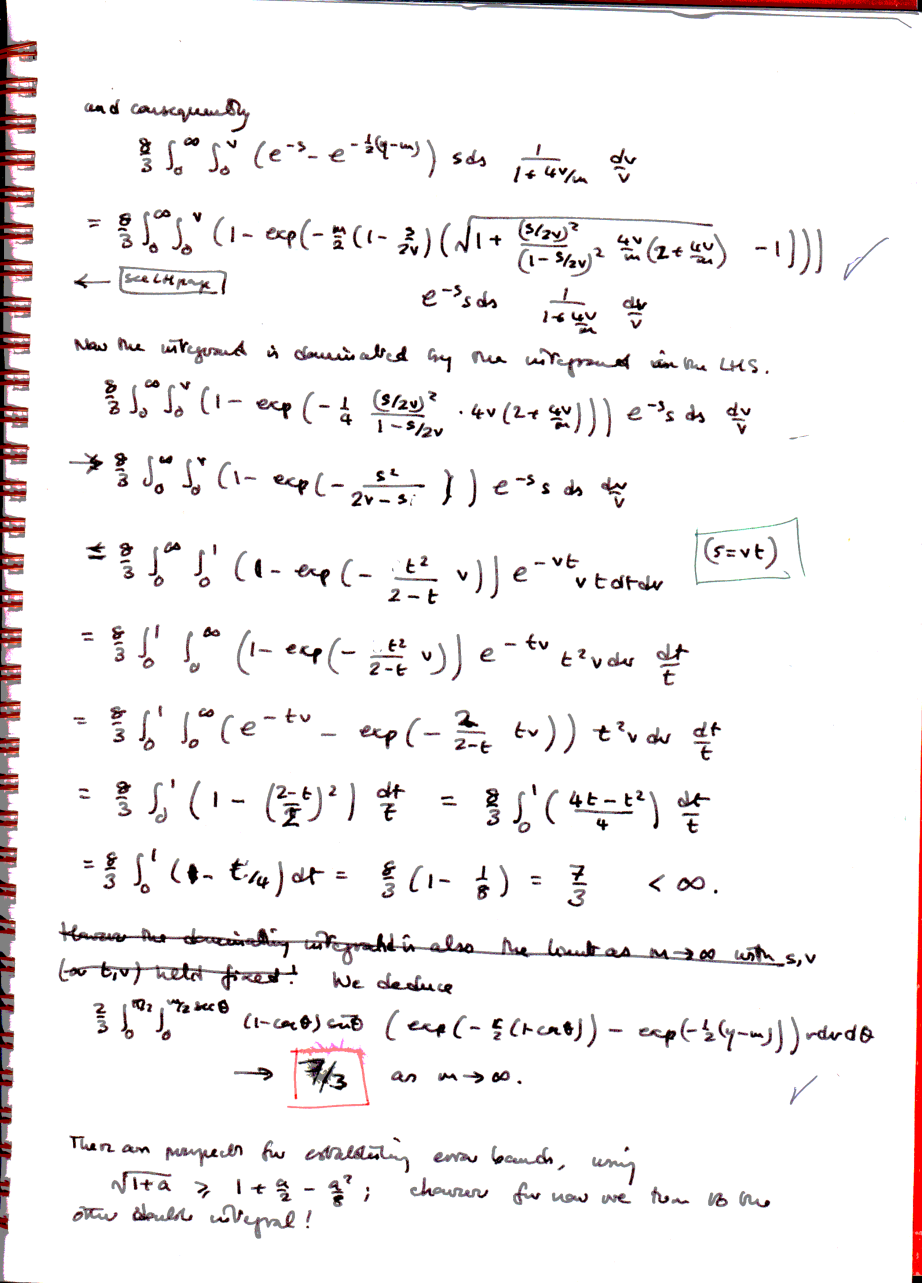 and consequently
8/3 ∫₀^∞ ∫₀^v (e^{-s} - e^{-½(y-m)}) s ds 1/(1+4v/m) dv/v
= 8/3 ∫₀^∞ ∫₀^v (1 - exp(-m/2 (1 - s/2v) (√(1 + (s/2v)²/(1-s/2v)² 4v/m (2+4v/m)) - 1)))
← see LH page e^{-s} s ds 1/(1+4v/m) dv/v
Now the integrand is dominated by the integrand in the LHS.
8/3 ∫₀^∞ ∫₀^v (1 - exp(-¼ (s/2v)²/(1-s/2v) · 4v (2+4v/m))) e^{-s} s ds dv/v
→ 8/3 ∫₀^∞ ∫₀^v (1 - exp(-s²/(2v-s))) e^{-s} s ds dv/v
= 8/3 ∫₀^∞ ∫₀^1 (1 - exp(-t²/(2-t) v)) e^{-vt} v t dt dv (s=vt)
= 8/3 ∫₀^1 ∫₀^∞ (1 - exp(-t²/(2-t) v)) e^{-tv} t² v dv dt/t
= 8/3 ∫₀^1 ∫₀^∞ (e^{-tv} - exp(-2/(2-t) tv)) t² v dv dt/t
= 8/3 ∫₀^1 (1 - ((2-t)/2)²) dt/t = 8/3 ∫₀^1 ((4t-t²)/4) dt/t
= 8/3 ∫₀^1 (1 - t/4) dt = 8/3 (1 - 1/8) = 7/3 < ∞.
However the dominating integrand is also the limit as m→∞ with s,v
(or t,v) held fixed! We deduce
2/3 ∫₀^{π/2} ∫₀^{m/2 sec θ} (1-cos θ) sin θ (exp(-r/2 (1-cos θ)) - exp(-½(y-m))) r dr dθ
→ 7/3 as m→∞.
There are prospects for establishing error bounds, using
√(1+a) ≥ 1 + a/2 - a²/8 ; however for now we turn to the
other double integral!